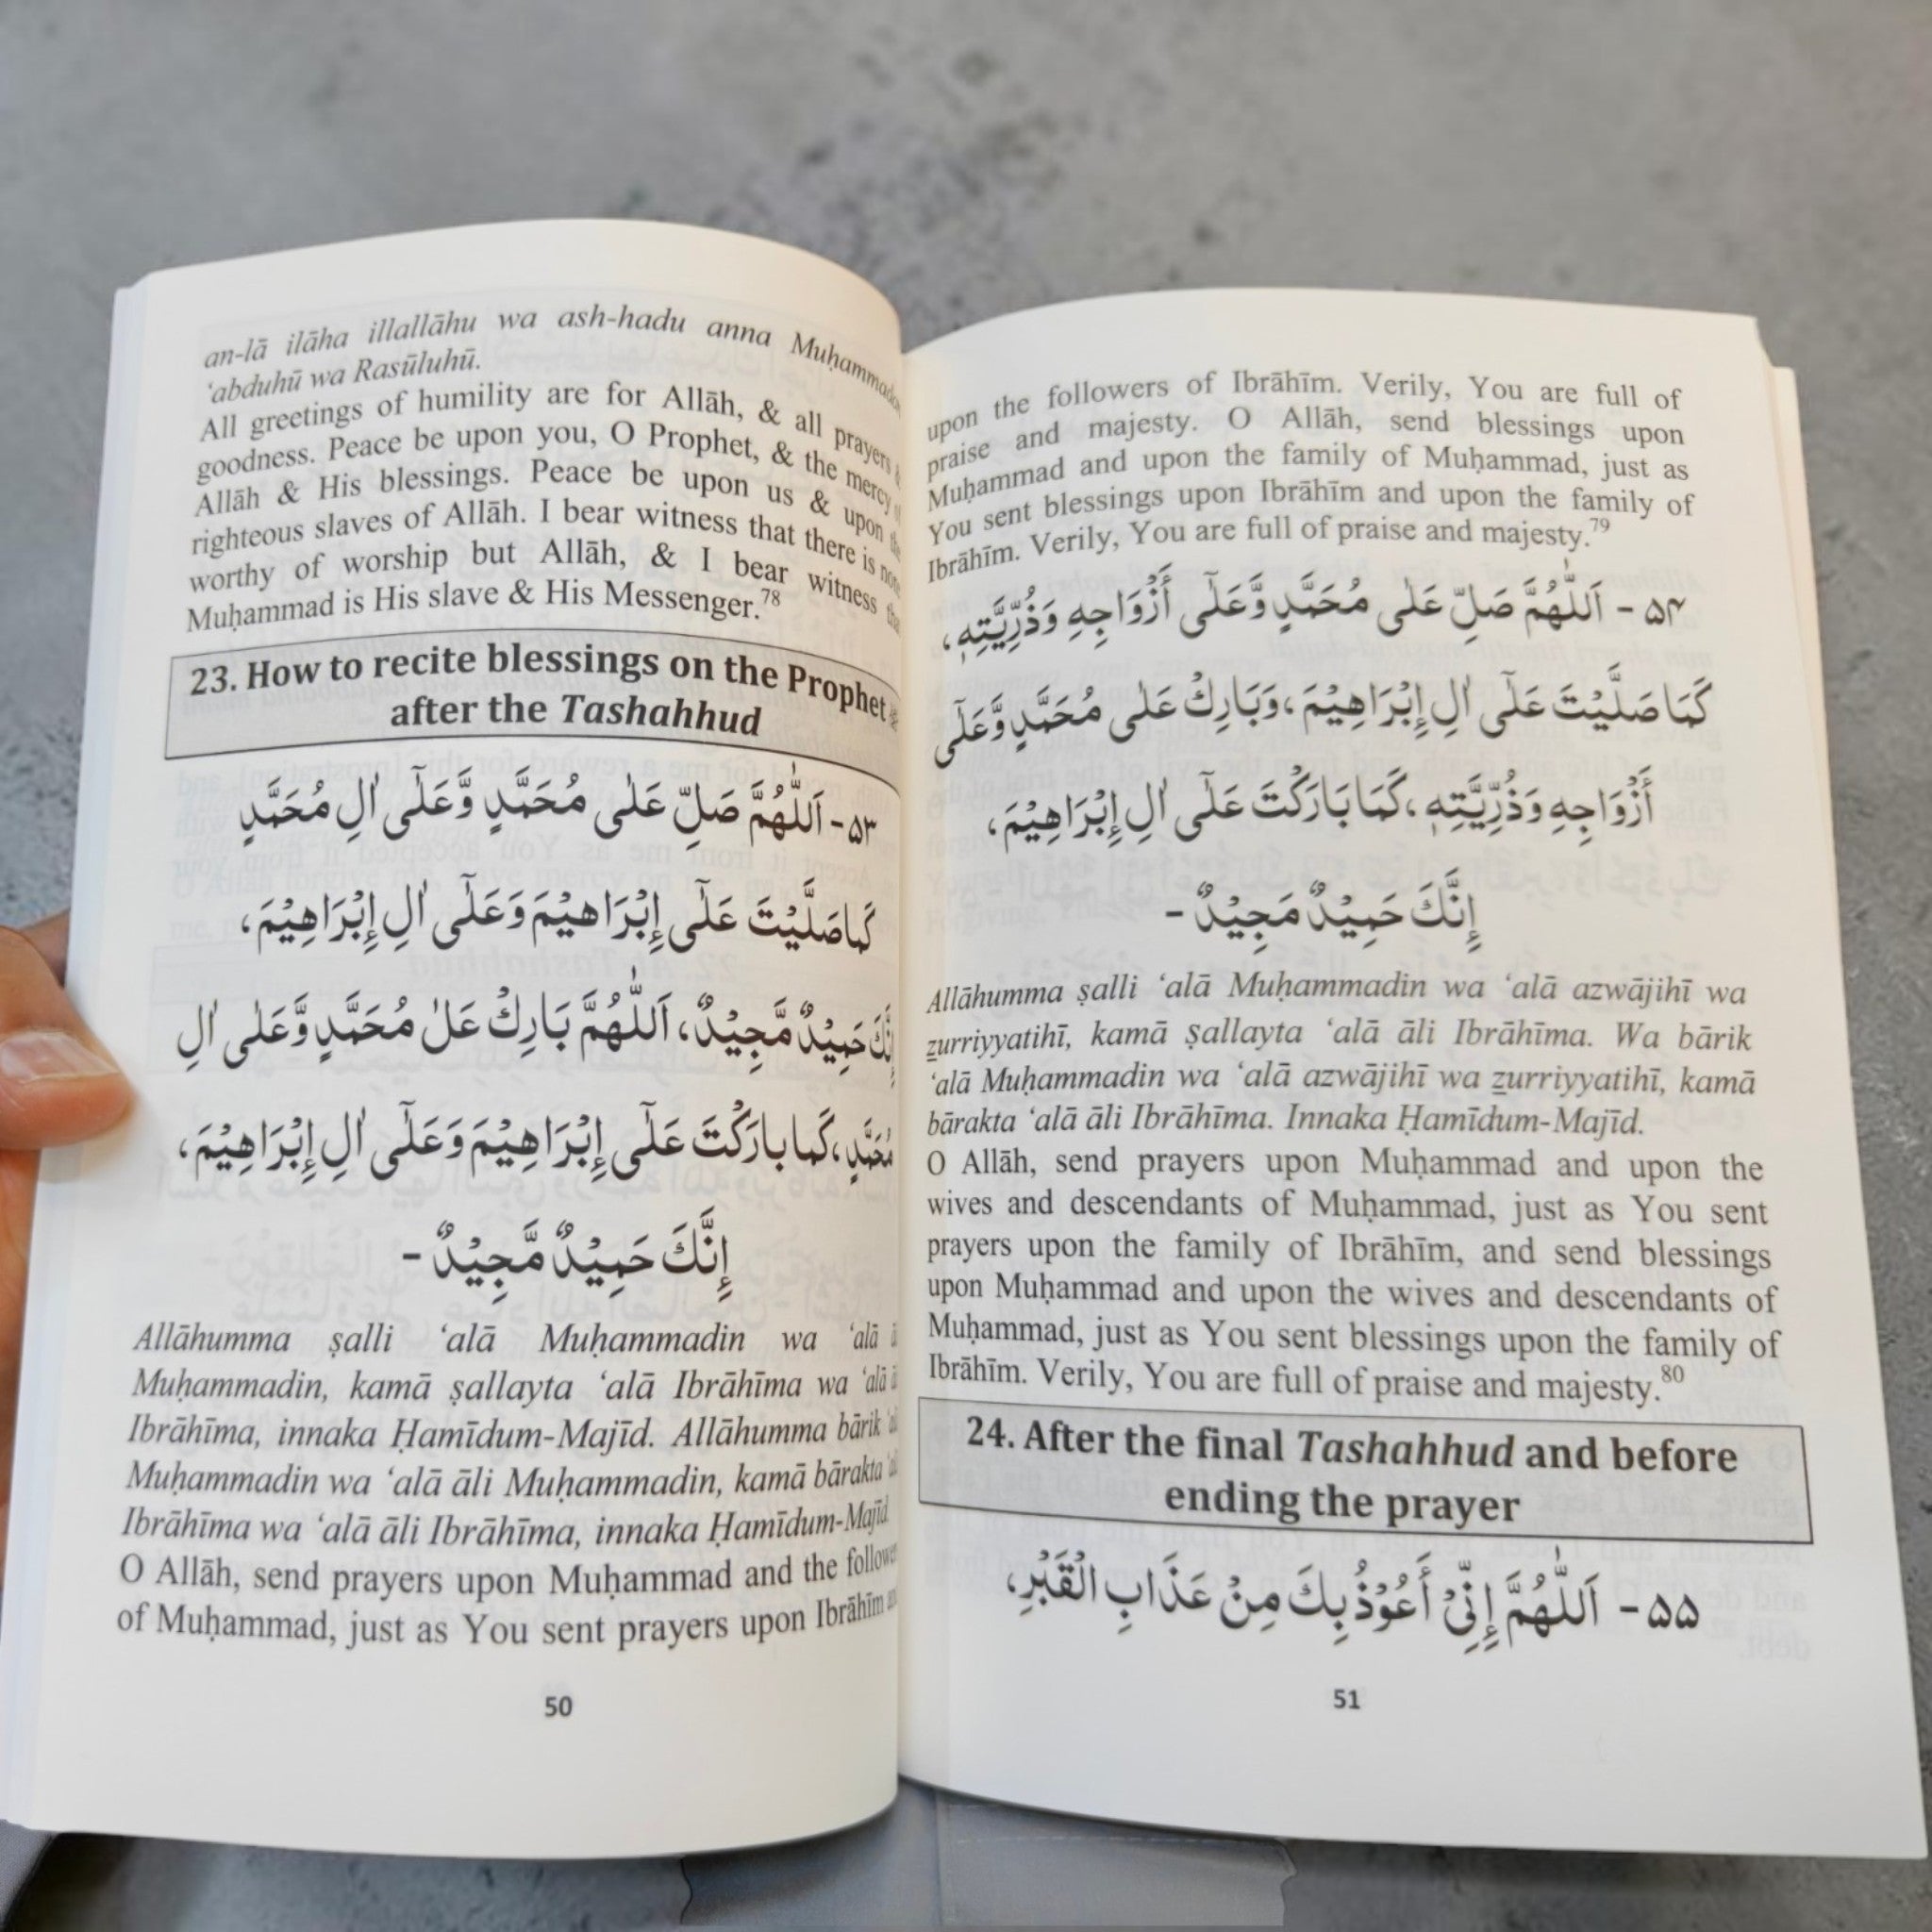 an-lā ilāha illallāhu wa ash-hadu anna
‘abduhū wa Rasūluhū.
All greetings of humility are for Allāh, & all prayers
goodness. Peace be upon you, O Prophet, & the mercy of
Allāh & His blessings. Peace be upon us & upon the
righteous slaves of Allāh. I bear witness that there is none
worthy of worship but Allāh, & I bear witness that
Muḥammad is His slave & His Messenger.78
23. How to recite blessings on the Prophet
after the Tashahhud
۵۳- اَللّٰهُمَّ صَلِّ عَلٰى مُحَمَّدٍ وَّعَلٰٓى اٰلِ مُحَمَّدٍ
كَمَا صَلَّيْتَ عَلٰٓى إِبْرَاهِيْمَ وَعَلٰٓى اٰلِ إِبْرَاهِيْمَ،
إِنَّكَ حَمِيْدٌ مَّجِيْدٌ، اَللّٰهُمَّ بَارِكْ عَلٰ مُحَمَّدٍ وَّعَلٰى اٰلِ
مُحَمَّدٍ، كَمَا بارَكْتَ عَلٰٓى إِبْرَاهِيْمَ وَعَلٰٓى اٰلِ إِبْرَاهِيْمَ،
إِنَّكَ حَمِيْدٌ مَّجِيْدٌ -
Allāhumma ṣalli ‘alā Muḥammadin wa ‘alā
Muḥammadin, kamā ṣallayta ‘alā Ibrāhīma wa ‘alā
Ibrāhīma, innaka Ḥamīdum-Majīd. Allāhumma bārik
Muḥammadin wa ‘alā āli Muḥammadin, kamā bārakta
Ibrāhīma wa ‘alā āli Ibrāhīma, innaka Ḥamīdum-Majīd
O Allāh, send prayers upon Muḥammad and the
of Muḥammad, just as You sent prayers upon Ibrāhīm
50
upon the followers of Ibrāhīm. Verily, You are full of
praise and majesty. O Allāh, send blessings upon
Muḥammad and upon the family of Muḥammad, just as
You sent blessings upon Ibrāhīm and upon the family of
Ibrāhīm. Verily, You are full of praise and majesty.79
۵۴ - اَللّٰهُمَّ صَلِّ عَلٰى مُحَمَّدٍ وَّعَلٰٓى أَزْوَاجِهِ وَذُرِّيَّتِهٖ،
كَمَا صَلَّيْتَ عَلٰٓى اٰلِ إِبْرَاهِيْمَ، وَبَارِكْ عَلٰى مُحَمَّدٍ وَّعَلٰٓى
أَزْوَاجِهِ وَذُرِّيَّتِهٖ، كَمَا بَارَكْتَ عَلٰٓى اٰلِ إِبْرَاهِيْمَ،
إِنَّكَ حَمِيْدٌ مَجِيْدٌ -
Allāhumma ṣalli ‘alā Muḥammadin wa ‘alā azwājihī wa
z̲urriyyatihī, kamā ṣallayta ‘alā āli Ibrāhīma. Wa bārik
‘alā Muḥammadin wa ‘alā azwājihī wa z̲urriyyatihī, kamā
bārakta ‘alā āli Ibrāhīma. Innaka Ḥamīdum-Majīd.
O Allāh, send prayers upon Muḥammad and upon the
wives and descendants of Muḥammad, just as You sent
prayers upon the family of Ibrāhīm, and send blessings
upon Muḥammad and upon the wives and descendants of
Muḥammad, just as You sent blessings upon the family of
Ibrāhīm. Verily, You are full of praise and majesty.80
24. After the final Tashahhud and before
ending the prayer
۵۵ - اَللّٰهُمَّ إِنِّيْ أَعُوْذُ بِكَ مِنْ عَذَابِ الْقَبْرِ،
51